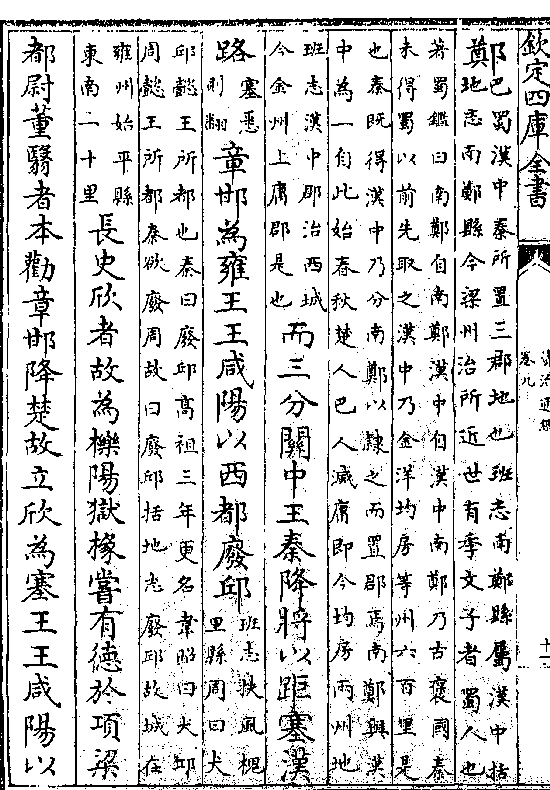 欽定四庫全書
資治通鑑
卷九
鄭巴蜀漢中秦所置三郡地也班志南鄭縣屬漢中括
地志南鄭縣今梁州治所近世有李文子者蜀人也
著蜀鑑曰南鄭自南鄭漢中自漢中南鄭乃古褒國秦
未得蜀以前先取之漢中乃金洋均房等州六百里是
也秦既得漢中乃分南鄭以隸之而置郡焉南鄭與漢
中為一自此始春秋楚人巴人滅庸即今均房兩州地
班志漢中郡治西城
今金州上庸郡是也
而三分關中王秦降將以距塞漢
路
塞悉
則翻
章邯為雍王王咸陽以西都廢邱
班志扶風槐
里縣周曰犬
邱懿王所都也秦曰廢邱高祖三年更名韋昭曰犬邱
周懿王所都秦欲廢周故曰廢邱括地志廢邱故城在
雍州始平縣
東南二十里
長史欣者故為櫟陽獄掾嘗有德於項梁
都尉董翳者本勸章邯降楚故立欣為塞王王咸陽以